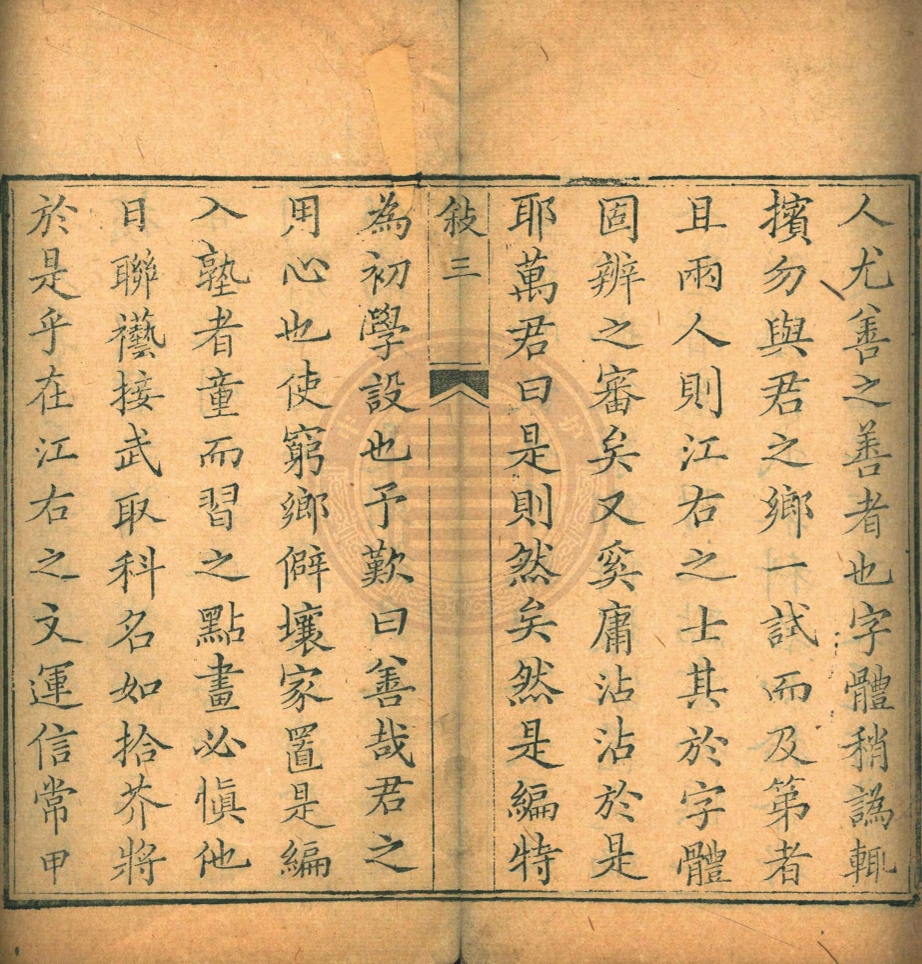 人尤善之善者也字體稍譌輒
擯勿與君之鄉一試而及第者
且兩人則江右之士其於字體
固辨之審矣又奚庸沾沾於是
耶萬君曰是則然矣然是編特
敍三
為初學設也予歎曰善哉君之
用心也使窮鄉僻壤家置是編
入塾者童而習之點畫必愼他
日聯襼接武取科名如拾芥將
於是乎在江右之文運信常甲